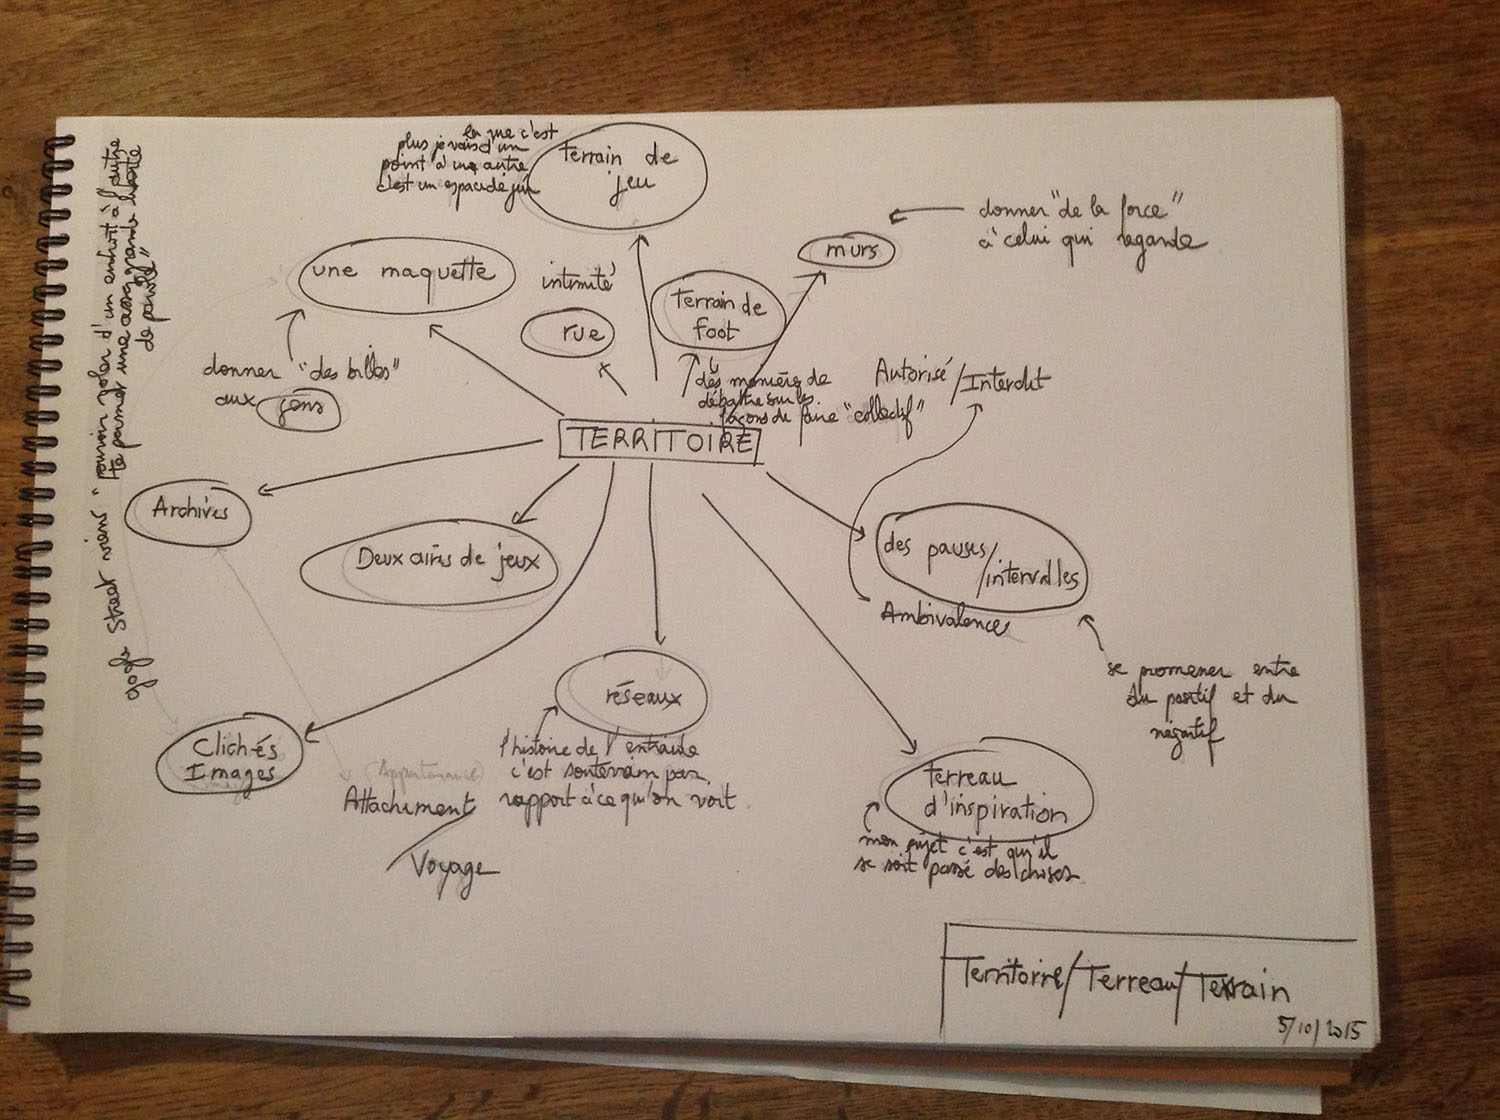 plus je vais d'un
point à une autre
c'est un espace de jeu
terrain de
jeu
donner "de la force"
à celui qui regarde
murs
une maquette
intimité
rue
Terrain de
foot
donner "des billes"
aux gens
dès manière de
débattre sur les
façons de faire "collectif"
Autorisé
/Interdit
TERRITOIRE
Archives
Deux aires de jeux
des pauses/
intervalles
Ambivalences
se promener entre
du positif et du
négatif
réseaux
l'histoire de l'entraide
c'est souterrain par
rapport à ce qu'on voit.
Clichés
Images
(Appartenance)
Attachement
/
Voyage
terreau
d'inspiration
mon sujet c'est qu'il
se soit passé des choses
google street view "pouvoir zoler d'un endroit à l'autre
te permet une assez grande liberté
de parole"
Territoire/Terreau/Terrain
5/10/2015